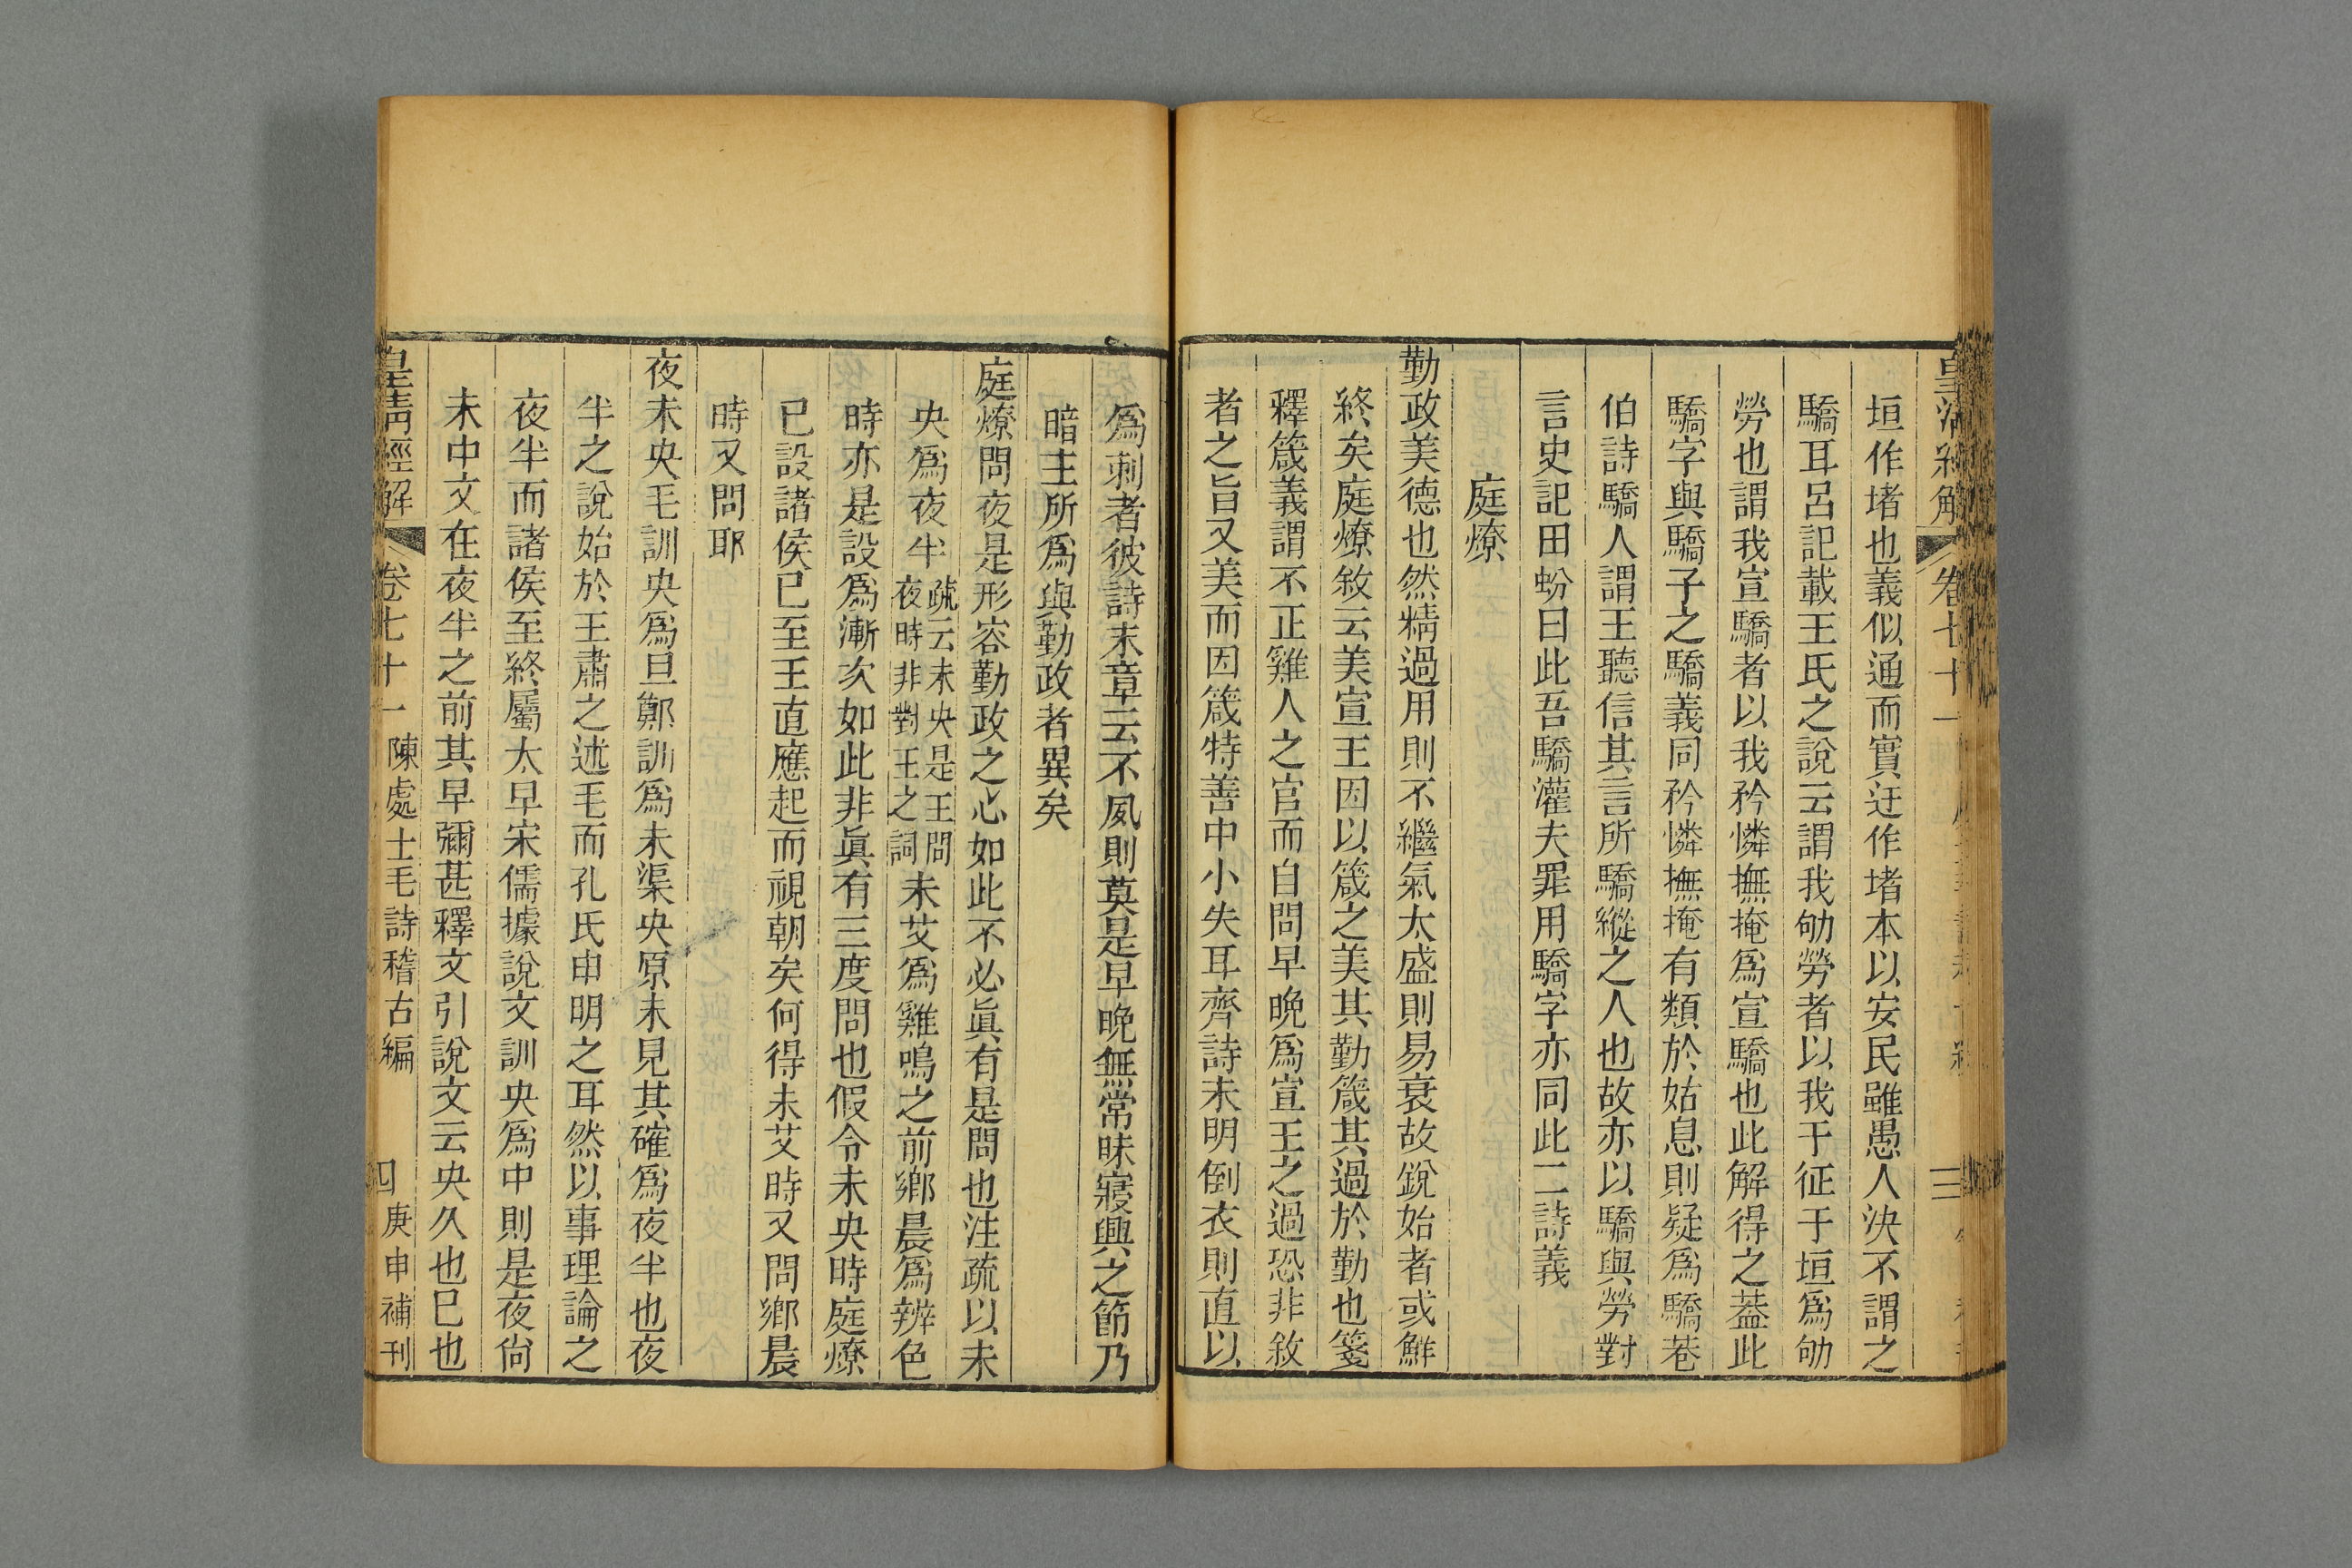 皇清經解 卷七十一 三
垣作堵也義似通而實迂作堵本以安民雖愚人決不謂之
驕耳呂記載王氏之說云謂我劬勞者以我于征于垣爲劬
勞也謂我宣驕者以我矜憐撫掩爲宣驕也此解得之葢此
驕字與驕子之驕義同矜憐撫掩有類於姑息則疑爲驕巷
伯詩驕人謂王聽信其言所驕縱之人也故亦以驕與勞對
言史記田蚡曰此吾驕灌夫罪用驕字亦同此二詩義
庭燎
勤政美德也然精過用則不繼氣太盛則易衰故銳始者或鮮
終矣庭燎敘云美宣王因以箴之美其勤箴其過於勤也箋
釋箴義謂不正雞人之官而自問早晚爲宣王之過恐非敘
者之旨又美而因箴特善中小失耳齊詩未明倒衣則直以
爲刺者彼詩末章云不夙則莫是早晚無常昧寢興之節乃
暗主所爲與勤政者異矣
庭燎問夜是形容勤政之心如此不必眞有是問也注疏以未
央爲夜半疏云未央是王問夜時非對王之詞未艾爲雞鳴之前鄉晨爲辨色
時亦是設爲漸次如此非眞有三度問也假令未央時庭燎
已設諸侯已至王直應起而視朝矣何得未艾時又問鄉晨
時又問耶
夜未央毛訓央爲旦鄭訓爲未渠央原未見其確爲夜半也夜
半之說始於王肅之述毛而孔氏申明之耳然以事理論之
夜半而諸侯至終屬太早宋儒據說文訓央爲中則是夜尙
未中文在夜半之前其早彌甚釋文引說文云央久也已也
皇清經解 卷七十一 陳處士毛詩稽古編 四 庚申補刊